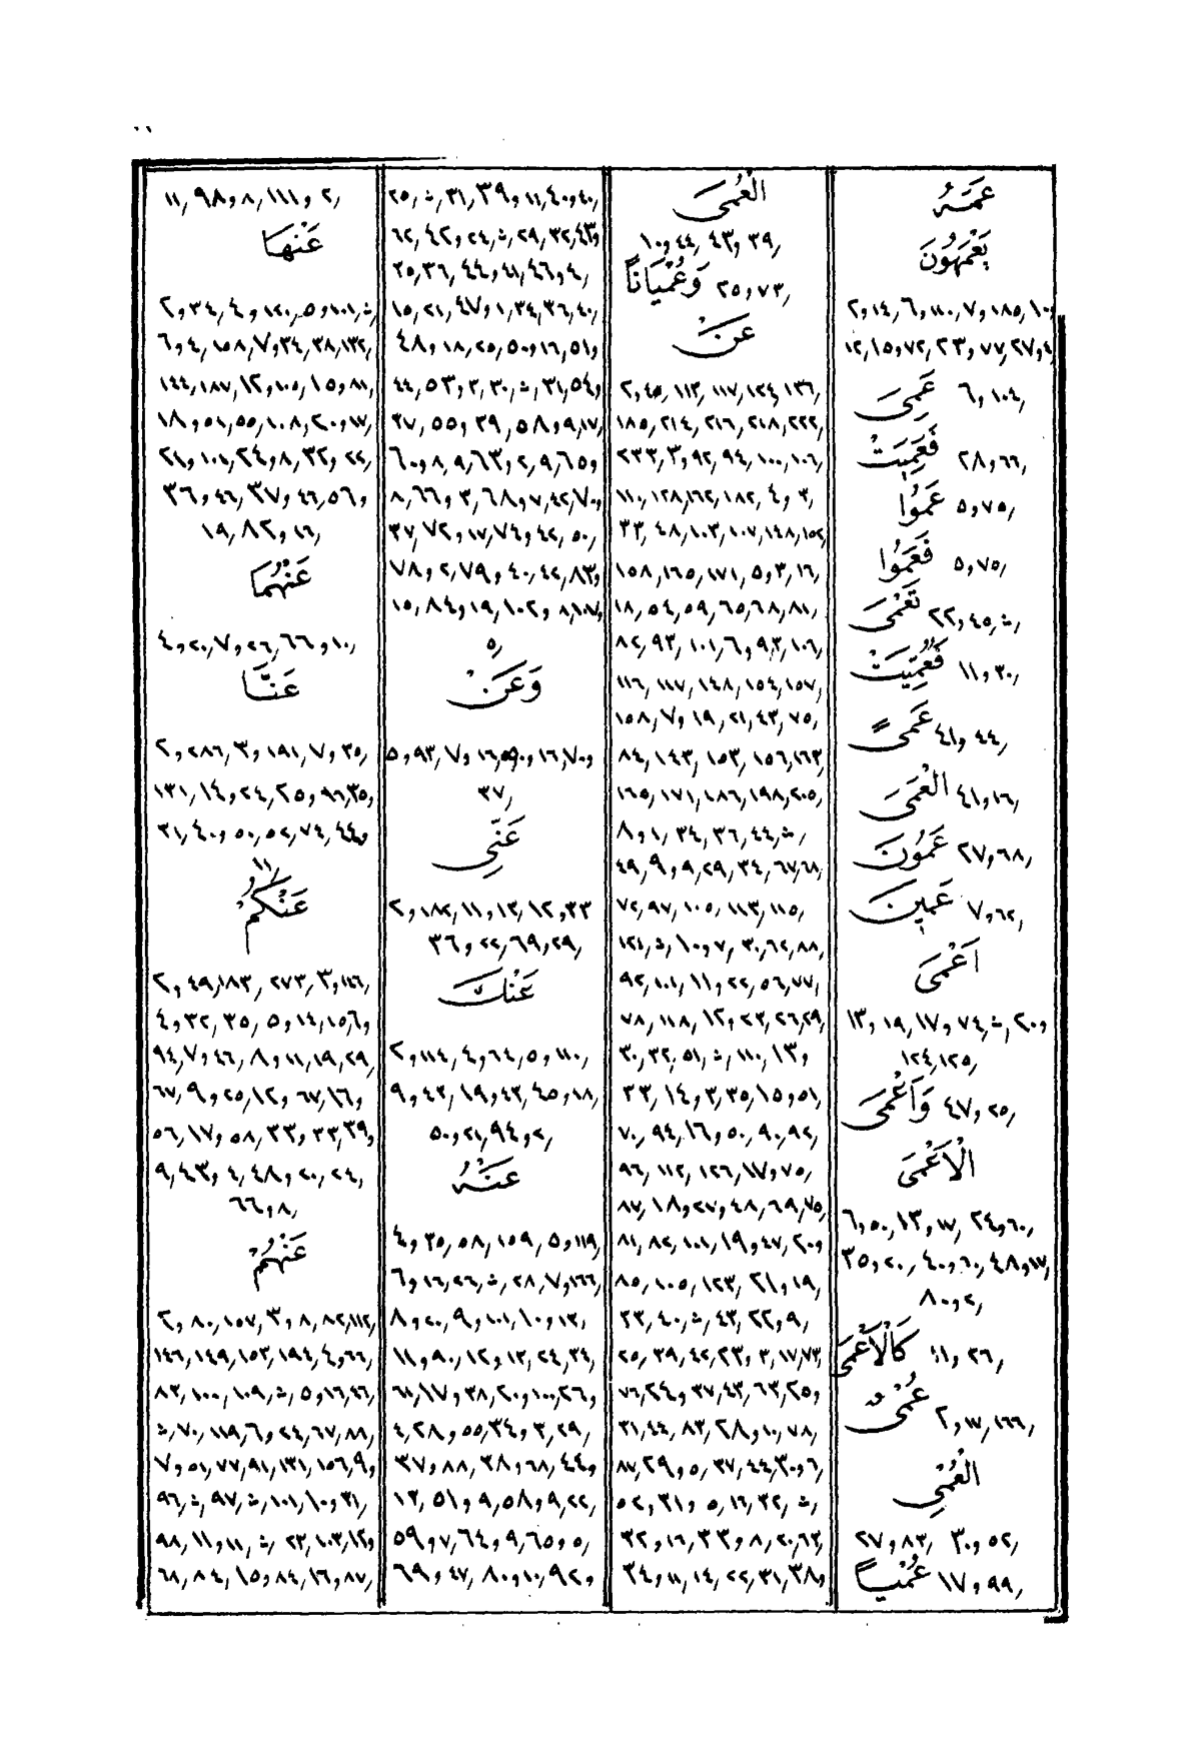 عَمَهُ
يَعْمَهُونَ
٢و١٤, ٦و١١٠, ٧و١٨٥, ١٠و
١٢, ١٥و٧٢, ٢٣و٧٧, ٢٧و٤
عَمِىَ ٦و١٠٤,
فَعَمِيَتْ ٢٨و٦٦,
عَمُوا ٥و٧٥,
فَعَمُوا ٥و٧٥,
تَعْمَى ٢٢و٤٥,ث,
فَعُمِّيَتْ ١١و٣٠,
عَمًى ٤١و٤٤,
الْعَمَى ٤١و١٦,
عَمُونَ ٢٧و٦٨,
عَمِينَ ٧و٦٢,
اَعْمَى
١٣و١٩, ١٧و٧٤,ث, ٢٠و
١٢٤,١٢٥,
وَاَعْمَى ٤٧و٢٥,
الْاَعْمَى
٦و٥٠, ١٣و١٧, ٢٤و٦٠,
٣٥و٢٠, ٤٠و٦٠, ٤٨و١٧,
٨٠و٢,
كَالْاَعْمَى ١١و٢٦,
عُمْىٌ ٢و١٧,١٦٦,
الْعُمْىِ
٢٧و٨٣, ٣٠و٥٢,
عُمْيًا ١٧و٩٩,
الْعُمْىَ
١٠و٤٤, ٤٣و٣٩,
وَعُمْيَانًا ٢٥و٧٣,
عَنْ
٢و٤٥, ١١٣, ١١٧, ١٢٤, ١٣٦,
١٨٥, ٢١٤, ٢١٦, ٢١٨, ٢٢٢,
٢٣٣, ٣و٩٢, ٩٤, ١٠٠, ١٠٦,
١١٠, ١٢٨, ١٦٢, ١٨٢, ٤و٣,
٣٣, ٤٨, ١٠٣, ١٠٧, ١٤٨, ١٥٢
١٥٨, ١٦٥, ١٧١, ٥و٣, ١٦,
١٨, ٥٤, ٥٩, ٦٥, ٦٨, ٨١,
٨٢, ٩٣, ١٠١, ٦و٩٣, ١٠٦,
١١٦, ١١٧, ١٤٨, ١٥٤, ١٥٧,
١٥٨, ٧و١٩, ٢١, ٤٣, ٧٥,
٨٤, ١٤٣, ١٥٣, ١٥٦, ١٦٣,
١٦٥, ١٧١, ١٨٦, ١٩٨, ٢٠٥,
٨و١, ٣٤, ٣٦, ٤٤,ث,
٧٢, ٩٧, ١٠٥, ١١٣, ١١٥,
٩٢, ١٠١, ١١و٢٢, ٥٦, ٧٧,
٧٨, ١١٨, ١٢و٢٣, ٢٦, ٢٩,
٣٠, ٣٢, ٥١,ث, ١١٠, ١٣و
٣٣, ١٤و٣, ٣٥, ١٥و٥١,
٧٠, ٩٤, ١٦و٥٠, ٩٠, ٩٢,
٩٦, ١١٢, ١٢٦, ١٧و٧٥,
٨٧, ١٨و٢٧, ٤٨, ٦٩, ٧٥,
٨١, ٨٢, ١٠١, ١٩و٤٧, ٢٠و
٨٥, ١٠٥, ١٢٣, ٢١و١٩,
٢٣, ٤٠,ث, ٤٣, ٢٢و٩,
٢٥, ٣٩, ٤٢, ٢٣و٣, ١٧, ٧٣,
٣١, ٤٤, ٨٣, ٢٨و١٠, ٧٨,
٨٧, ٢٩و٥, ٣٧, ٤٤, ٣٠و٦,
٥٢, ٣١و٥, ١٦, ٣٢,ث,
٣٢, ١٦, ٣٣و٨, ٢٠, ٦٣,
٣٤و١١, ١٤, ٢٢, ٣١, ٣٨و
٢٥,ث, ٣١, ٣٩و١١, ٤٠و٤٠,
٦٢, ٤٢و٢٤,ث, ٢٩, ٣٢, ٤٣و
٢٥, ٣٦, ٤٤و٤١, ٤٦و٤,
١٥, ٢١, ٤٧و١, ٣٤, ٣٦, ٤٠,
٤٨و١٨, ٢٥, ٥٠و١٦, ٥١و
٤٤, ٥٣و٣, ٣٠,ث, ٣١, ٥٤و
٢٧, ٥٥و٣٩, ٥٨و٩, ١٧,
٦٠و٨, ٩, ٦٣و٢, ٩, ٦٥و
٨, ٦٦و٣, ٦٨و٧, ٤٢, ٧٠و
٣٧, ٧٢و١٧, ٧٤و٤٢, ٥٠,
٧٨و٢, ٧٩و٤٠, ٤٢, ٨٣و
١٥, ٨٤و١٩, ١٠٢و٨, ١٠٧و
٥,
وَعَنْ
٣٧,
عَنّى
٢و١٨٢, ١١و١٢, ١٢و٣٣
٣٦و٢٢, ٦٩و٢٩,
عَنْكَ
٢و١١٤, ٤و٦٤, ٥و١١٠,
٩و٤٣, ١٩و٤٣, ٤٥و١٨,
٥٠و٢١, ٩٤و٢,
عَنْهُ
٤و٣٥, ٥٨, ١٥٩, ٥و١١٩,
٦و١٦, ٢٦,ث, ٢٨, ٧و١٦٦,
٨و٢٠, ٩و١٠١, ١٠و١٢,
١١و٩٠, ١٢و١٣, ٢٤, ٣٤,
٤, ٢٨و٥٥, ٣٤و٣, ٢٩,
٣٧و٨٨, ٣٨و٦٨, ٤٤و
١٣, ٥١و٩, ٥٨و٩, ٢٢,
٥٩و٧, ٦٤و٩, ٦٥و٥,
٦٩و٤٧, ٨٠و١٠, ٩٢و
١١, ٩٨و٨, ١١١و٢,
عَنْهَا
٢و٣٤, ٤و١٢٠, ٥و١٠١,ث,
٦و٤, ١٥٨, ٧و٣٤, ٣٨, ١٣٢,
١٤٤, ١٨٧, ١٢و١٠٥, ١٥و٨١,
١٨و٥١, ٥٥, ١٠٨, ٢٠و١٧,
٢١و١٠١, ٢٤و٨, ٣٢و٢٢,
٣٦و٤٦, ٣٧و٤٦, ٥٦و
١٩, ٨٢و١٦,
عَنْهُمَا
٤و٢٠, ٧و٢٦, ٦٦و١٠,
عَنَّا
٢و٢٨٦, ٣و١٩١, ٧و٣٥,
١٣١, ١٤و٢٤, ٢٥و٩٦, ٣٥,
٣١, ٤٠و٥٠, ٥٢, ٧٤, ٤٤و
١١,
عَنْكُمْ
٢و٤٩, ١٨٣, ٢٧٣, ٣و١٤٦,
٤و٣٢, ٣٥, ٥و١٤, ١٥٦و
٩٤, ٧و٤٦, ٨و١١, ١٩, ٢٩,
٦٧, ٩و٢٥, ١٢و٦٧, ١٦و
٥٦, ١٧و٥٨, ٣٣و٣٣, ٣٩و
٩, ٤٣و٤, ٤٨و٢٠, ٢٤,
٦٦و٨,
عَنْهُمْ
٢و٨٠, ١٥٧, ٣و٨, ٨٢, ١١٢,
١٤٦, ١٤٩, ١٥٣, ١٩٤, ٤و٦٢,
٨٣, ١٠٠, ١٠٩,ث, ٥و١٦, ٤٦,
ث,٧٠, ١١٩, ٦و٢٤, ٦٧, ٨٨,
٧و٥١, ٧٧, ٩١, ١٣١, ١٥٦, ٩و
٩٦,ث, ٩٧,ث, ١٠١, ١٠و٣١,
٩٨, ١١و١١,ث, ٢٣, ١٠٣, ١٢و
٦٨, ٨٤, ١٥و٨٤, ١٦و٨٧,